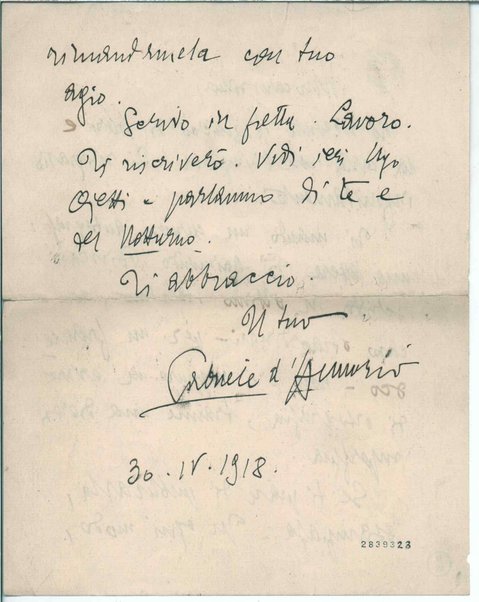 rimandamela con tuo
agio.
Scrivo in fretta. Lavoro.
Ti riscriverò. Vidi ieri Ugo
Ojetti e parlammo di te e
del Notturno.
Ti abbraccio.
Il tuo
Gabriele d'Annunzio
30.IV.1918.
2839323